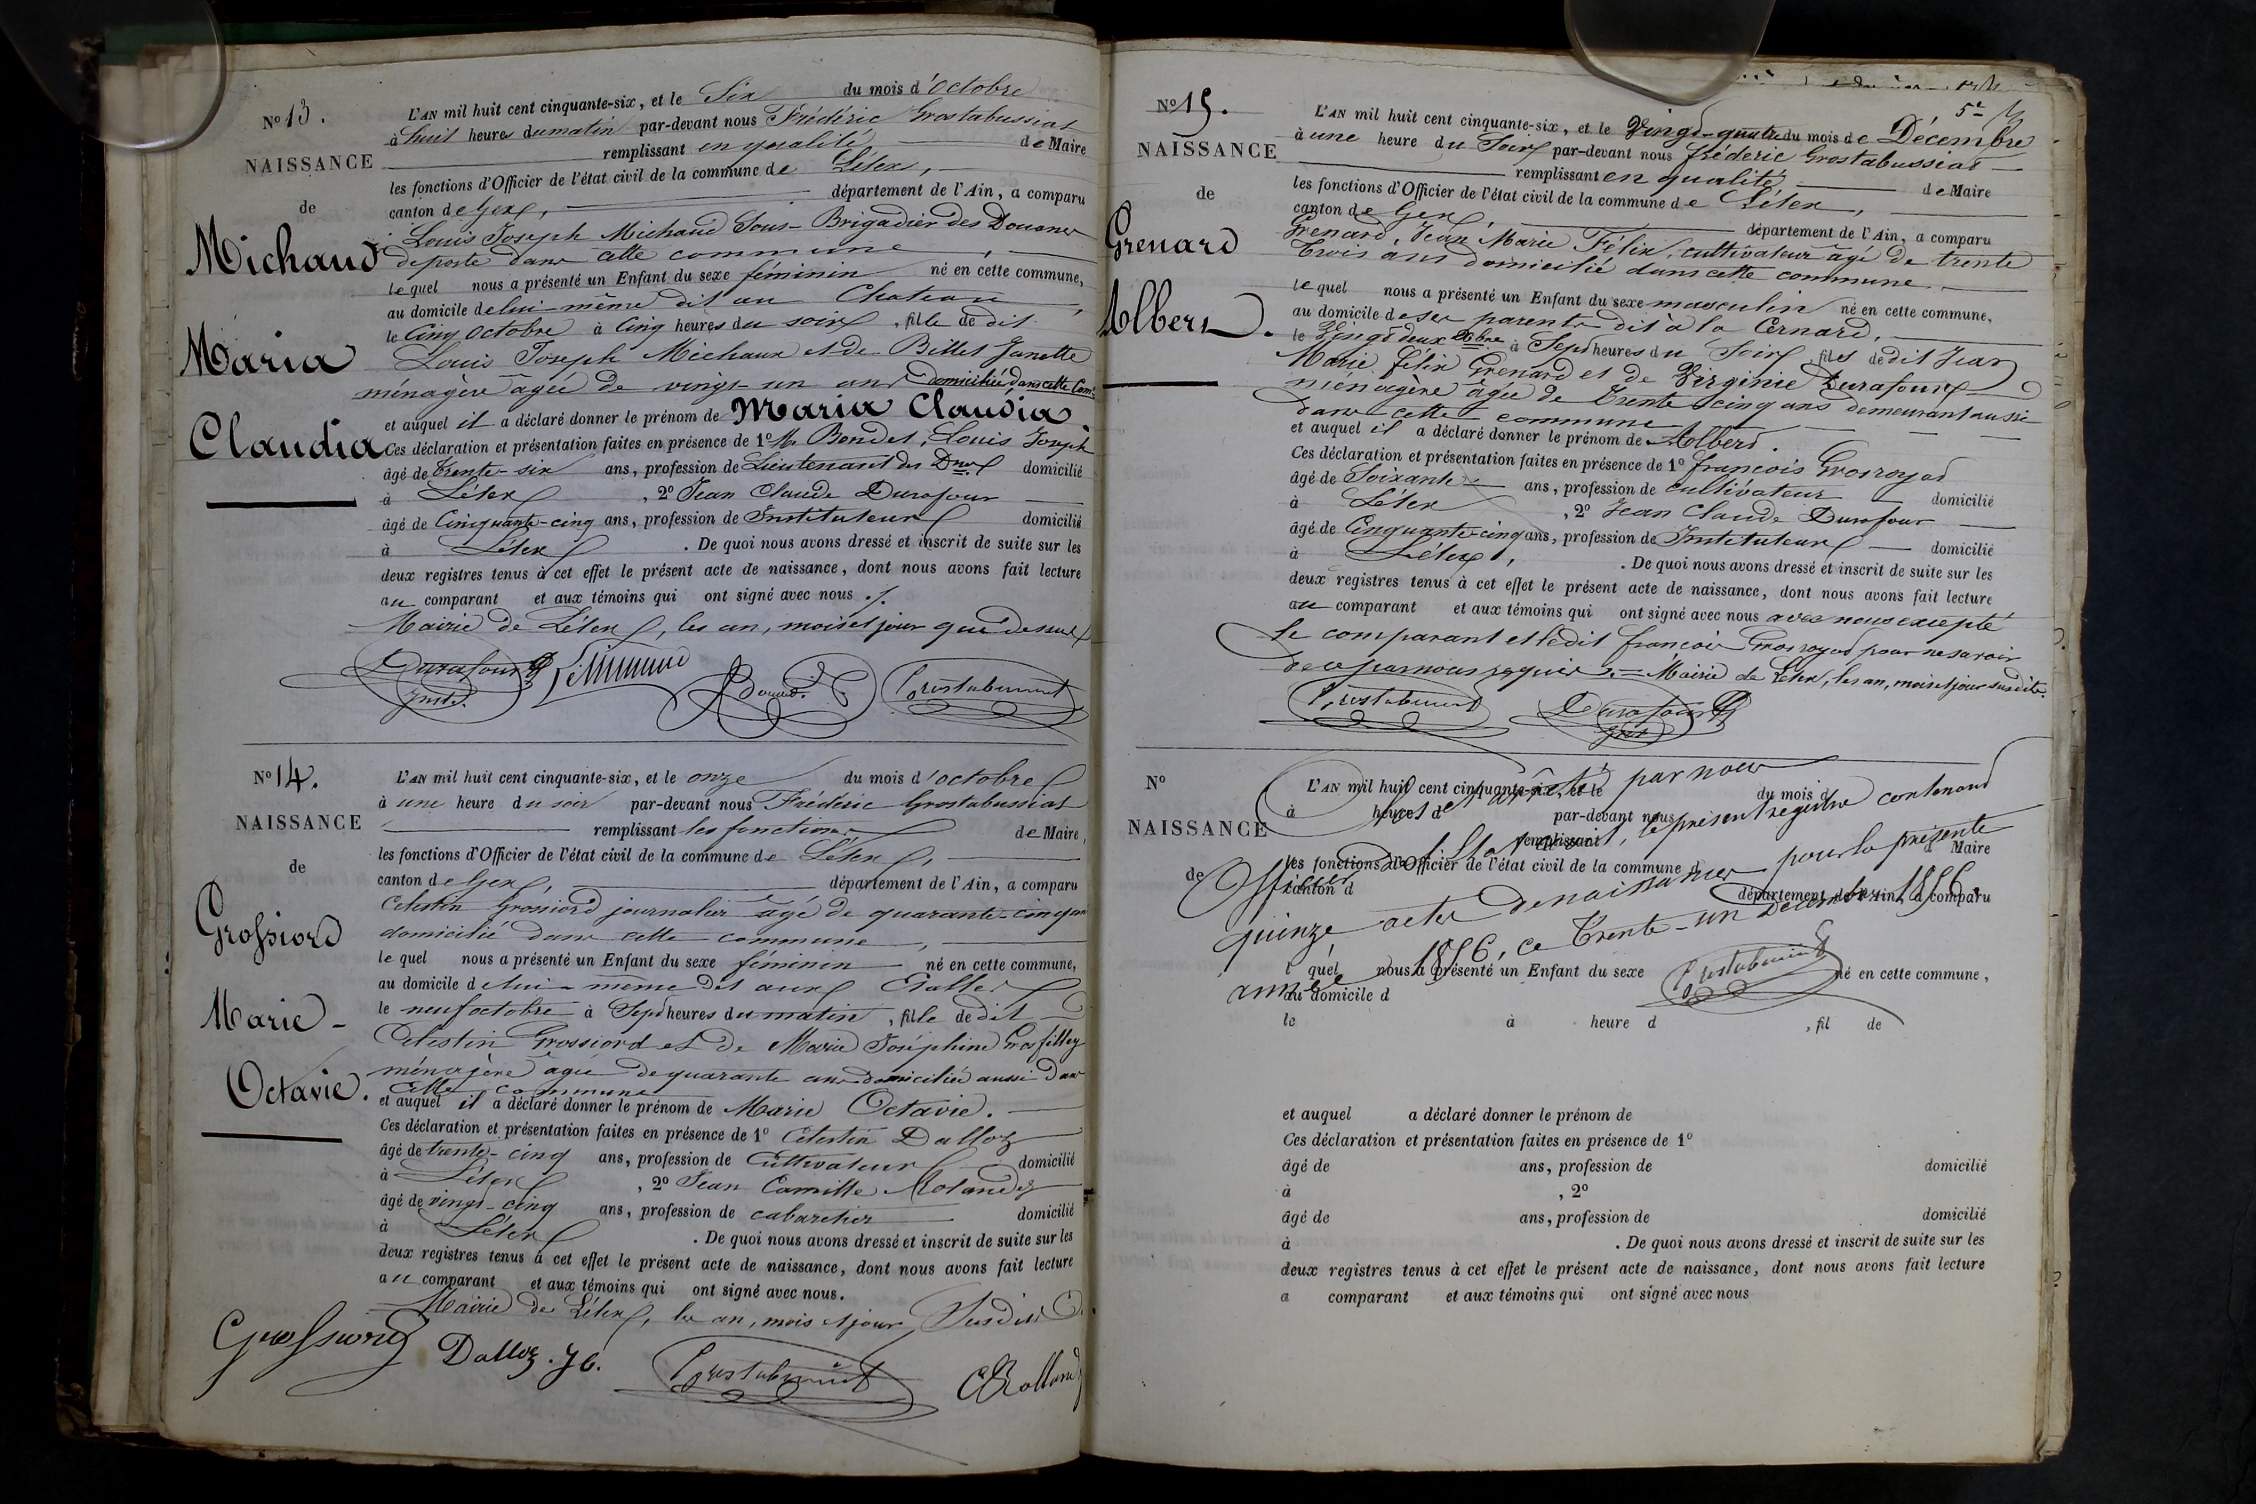 No 13.
NAISSANCE
de
Michaud
Maria
Claudia.
L'AN mil huit cent cinquante-six, et le Six du mois d'octobre
à huit heures du matin par-devant nous Frédéric Grostabussiat
remplissant en qualité de Maire
les fonctions d'Officier de l'état civil de la commune de Lélex,
canton de Gex, département de l'Ain, a comparu
Louis Joseph Michaud Sous-Brigadier des Douanes
de poste dans cette commune
lequel nous a présenté un Enfant du sexe féminin né en cette commune,
au domicile de lui-même dit au Chateau,
le Cinq octobre à Cinq heures du soir, fille de dit
Louis Joseph Michaux et de Billet Janette
ménagère âgée de vingt-un ans domiciliée dans cette Com.e
et auquel il a déclaré donner le prénom de Maria Claudia.
Ces déclaration et présentation faites en présence de 1º Mr Bondet, Louis Joseph
âgé de trente-six ans, profession de Lieutenant des Dnes domicilié
à Lélex, 2º Jean Claude Durafour
âgé de Cinquante-cinq ans, profession de Instituteur domicilié
à Lélex. De quoi nous avons dressé et inscrit de suite sur les
deux registres tenus à cet effet le présent acte de naissance, dont nous avons fait lecture
au comparant et aux témoins qui ont signé avec nous ./.
Mairie de Lélex, les an, mois et jour que dessus
Durafour Inst. Grostabussiat
No 14.
NAISSANCE
de
Grossiord
Marie-
Octavie.
L'AN mil huit cent cinquante-six, et le onze du mois d'octobre
à une heure du soir par-devant nous Frédéric Grostabussiat
remplissant les fonctions de Maire,
les fonctions d'Officier de l'état civil de la commune de Lélex,
canton de Gex, département de l'Ain, a comparu
Celestin Grossiord journalier âgé de quarante-cinq ans
domicilié dans cette commune,
lequel nous a présenté un Enfant du sexe féminin né en cette commune,
au domicile de lui-même dit aux
le neuf octobre à Sept heures du matin, fille de dit
Celestin Grossiord et de Marie Joséphine Grosfilley
ménagère âgée de quarante ans domiciliée aussi dans
cette commune
et auquel il a déclaré donner le prénom de Marie Octavie.
Ces déclaration et présentation faites en présence de 1º Celestin Dalloz
âgé de trente-cinq ans, profession de Cultivateur domicilié
à Lélex, 2º Jean Camille Rolandez
âgé de vingt-cinq ans, profession de cabaretier domicilié
à Lélex. De quoi nous avons dressé et inscrit de suite sur les
deux registres tenus à cet effet le présent acte de naissance, dont nous avons fait lecture
au comparant et aux témoins qui ont signé avec nous.
Mairie de Lélex, les an, mois et jour Susdits
Grossiord Dalloz Grostabussiat
No 15.
NAISSANCE
de
Grenard
Albert.
L'AN mil huit cent cinquante-six, et le Vingt-quatre du mois de Décembre
à une heure du Soir par-devant nous frédéric Grostabussiat
remplissant en qualité de Maire
les fonctions d'Officier de l'état civil de la commune de Lélex,
canton de Gex, département de l'Ain, a comparu
Grenard, Jean Marie Félix, cultivateur âgé de trente
trois ans domicilié dans cette commune
lequel nous a présenté un Enfant du sexe masculin né en cette commune,
au domicile de ses parents dit à la Cernard,
le Vingt deux Xbre à Sept heures du Soir, fils de dit Jean
Marie félix Grenard et de Virginie Durafour
ménagère âgée de Trente cinq ans demeurant aussi
dans cette commune
et auquel il a déclaré donner le prénom de Albert.
Ces déclaration et présentation faites en présence de 1º françois Grosroyad
âgé de Soixante ans, profession de cultivateur domicilié
à Lélex, 2º Jean Claude Durafour
âgé de Cinquante-cinq ans, profession de Instituteur domicilié
à Lélex,. De quoi nous avons dressé et inscrit de suite sur les
deux registres tenus à cet effet le présent acte de naissance, dont nous avons fait lecture
au comparant et aux témoins qui ont signé avec nous avec nous excepté
le comparant et ledit françois Grosroyad pour ne savoir
de ce par nous requis Mairie de Lélex, les an, mois et jour susdits.
Grostabussiat Durafour
No
NAISSANCE
de
L'AN mil huit cent cinquante-six, et le du mois d
à heure d par-devant nous
remplissant d Maire
les fonctions d'Officier de l'état civil de la commune d
canton d département de l'Ain, a comparu
Clos et arrêté par nous
Officier de l'État civil, le présent registre contenant
quinze actes de naissances pour la présente
année 1856, ce Trente-un Décembre 1856.
Grostabussiat
l quel nous a présenté un Enfant du sexe né en cette commune,
au domicile d
le à heure d , fil de
et auquel a déclaré donner le prénom de
Ces déclaration et présentation faites en présence de 1º
âgé de ans, profession de domicilié
à , 2º
âgé de ans, profession de domicilié
à . De quoi nous avons dressé et inscrit de suite sur les
deux registres tenus à cet effet le présent acte de naissance, dont nous avons fait lecture
a comparant et aux témoins qui ont signé avec nous